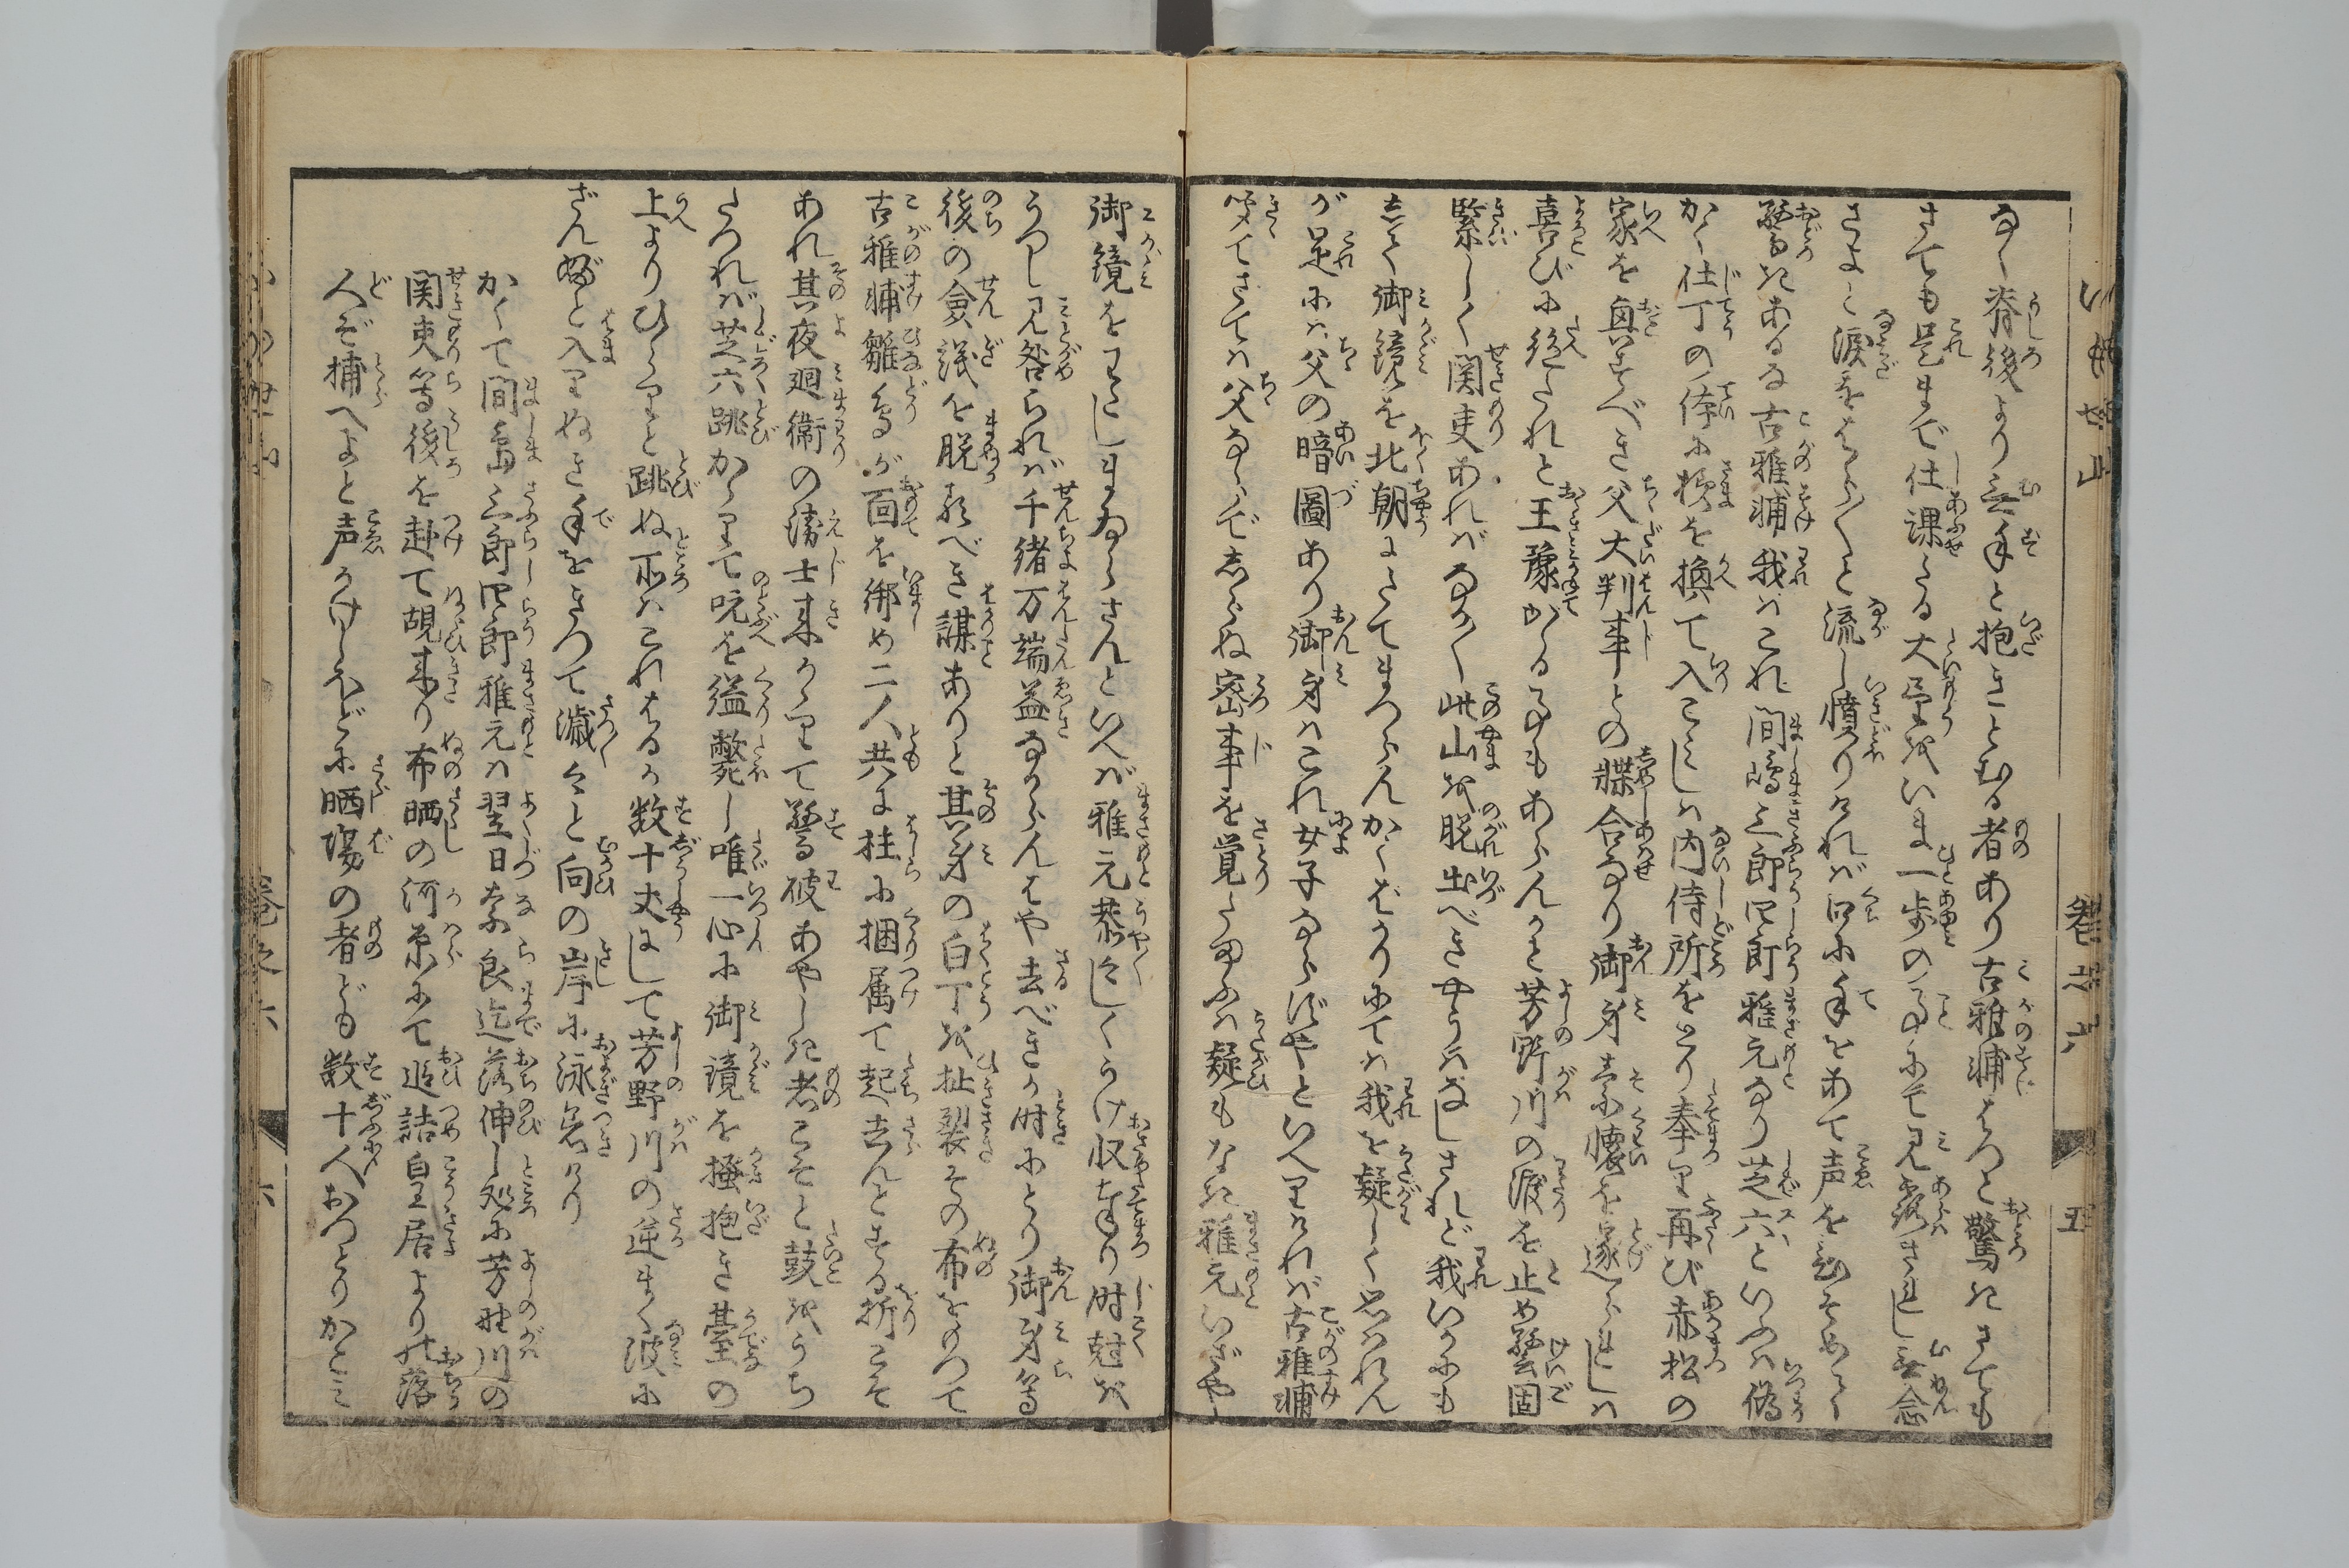 なく脊後より無手と抱きとむる者あり古雅浦はつと驚きさても
さても是まで仕課たる大望をいま一歩の事にて見露されし無念
さよと涙をはら〳〵と流し憤りければ口に手をあて声をひそめて
驚きあるな古雅浦我はこれ間嶋三郎四郎雅元なり芝六といふは偽
かく仕丁の侍に模を換て入こみしは内侍所をとり奉り再び赤松の
家を興すべき父大判事との牃合なり御身素懐を遂られしは
喜びに絶たれと王豫がゝる事もあらんかと芳野川の渡を止め警固
緊しく関吏あればなか〳〵此山を脱出べきやうはなしされど我いかにも
して御鏡を北朝にたてまつらんかくばかりにては我を疑しく思はれん
が是には父の暗圖あり御身はこれ女子ならずやといへりければ古雅浦
聞てさては父ならでしらぬ密事を覚り玉ふは疑もなき雅元いざや
御鏡をわたしまゐらさんといへば雅元恭しくうけ収奉り時尅を
うつし見咎られば千緒万端益なからんはや去べきか時にとり御身等
後の僉議を脱るべき謀ありと其身の白丁を扯裂その布をもつて
古雅浦雛鳥が面を綁め二人共に柱に捆属て起去んとする折こそ
あれ其夜廻衞の衛士来かゝりて驚破あやしき者こそと鼓をうち
たつれば芝六跳かゝりて吭を縊斃し唯一心に御鏡を掻抱き臺の
上よりひらりと跳ぬ所はこれはるか数十丈にして芳野川の逆まく波に
ざんぶと入りぬき手をきつて濈々と向の岸に泳着けり
かくて間島三郎四郎雅元は翌日奈良迄落伸し処に芳野川の
関吏等後を赴て覘来り布晒の河原にて追詰皇居より の落
人ぞ捕へよと声かけしほどに晒場の者ども数十人おつとりかこみ
いもせ山
巻之六
五
巻之六
六